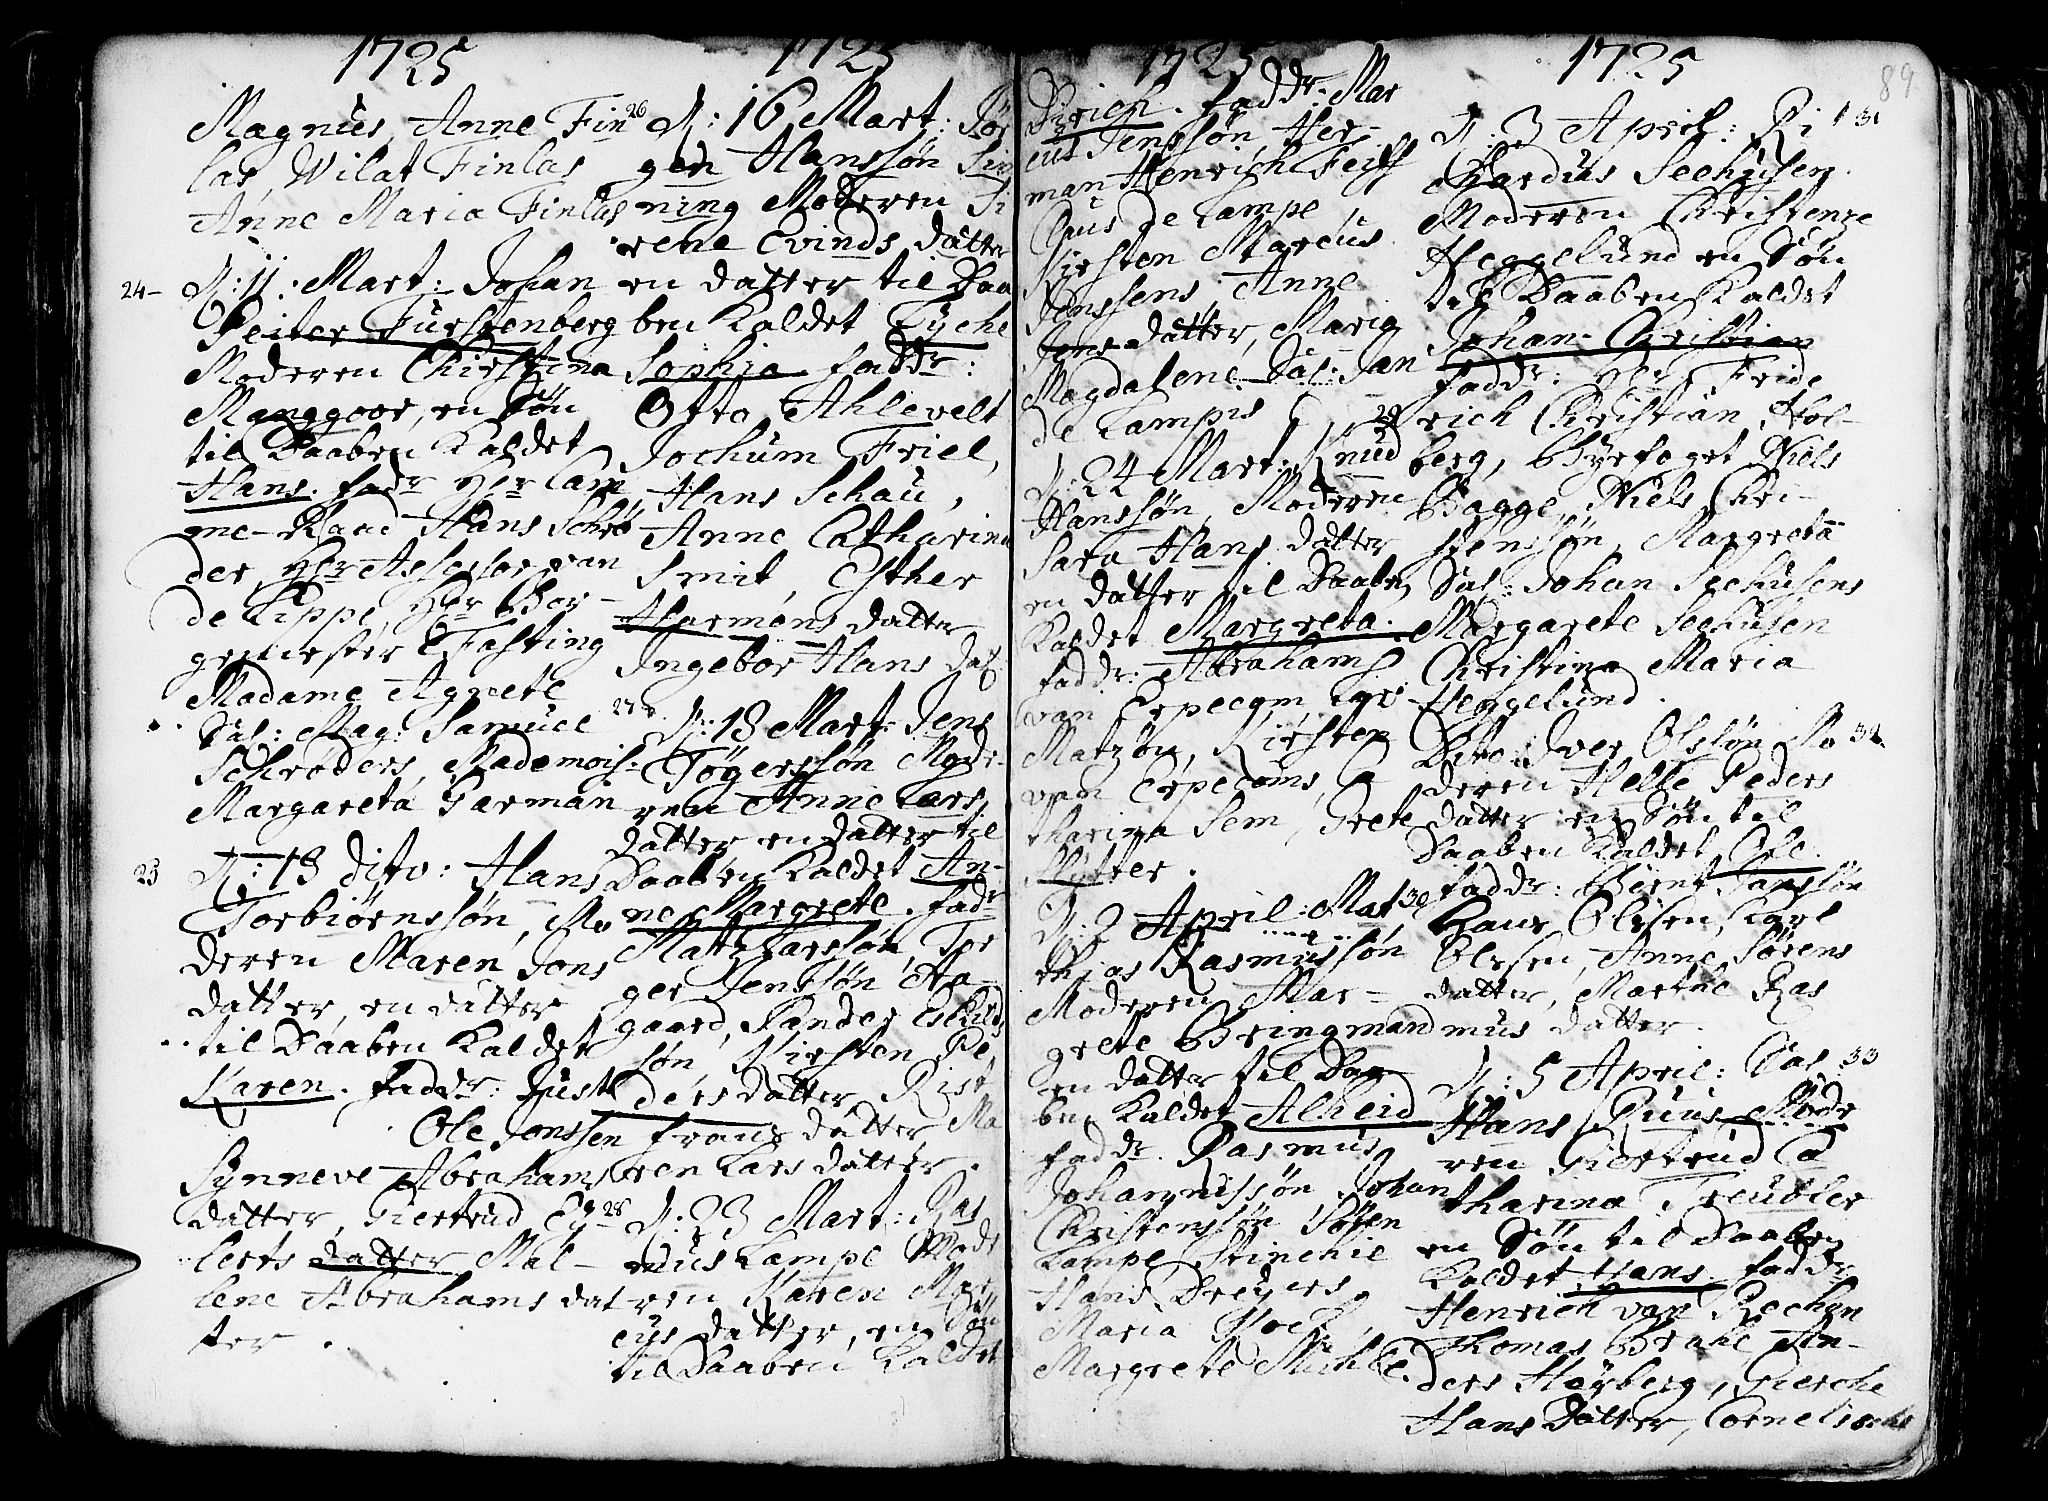 1725
Magnus, Anne Fin
las, Wilat Finlas
Anne Maria Finlas
24 -
D: 11. Mart: Johan
Peiter Fürstenberg
Moderen Christina
Manggoor, en Søn
til Daaben kaldet
Hans. fadr Her Cam
me-Raad Hans Schrö
der, Her Assessor van
de Lippe, Her Bor-
gemester Fasting
Madame Agnete
Sal: Mag: Samuel
Schrøders, Mademois:
Margareta Garman
25
D: 13 dito: Hans
Torbiørnssøn, Mo
deren Maren Jons
datter, en datter
til Daaben kaldet
Karen. faddr: Just
Ole Jonssen
Synneve Abrahams
datter, Giertrud Ey
lerts datter Mal-
lene Abrahams dat
ter.
1725
26
D: 16 Mart: Jør
gen Hanssøn
ning Moderen Si
rene Evinds datter
en datter til Daa
ben kaldet Tyche
Sophia faddr:
Otto Ahlevelt
Jochum Friel,
Hans Schau,
Anne Catharina
Smit, Esther
Harmens datter
Ingebor Hans dat
27
D: 18 Mart: Jens
Tøgerssøn Mode
ren Anne Lars
datter en datter til
Daaben kaldet An-
ne Margrete. fadr
Mats Larssøn, Tor
ger Jenssøn Aa-
gaard, Sander Eskilds
søn, Kirsten Pe
ders datter, Rist
frans datter Ma
ren Lars datter.
28
D: 23 Mart: Ras
mus Kampe Mode
ren Karen Mar
cus datter, en Søn
til Daaben kaldet
1725
Dirich. faddr: Mar
cus Jenssøn, Her-
man Henrich Feiff
Claus de Lampe
Kirsten Marcus
Jenssens, Anne
Jens datter, Maria
Magdalene Sal: Jan
de Lampis
29
D: 24 Mart: Knud
Hanssøn, Moderen
Sara Hans datter
en datter til Daaben
kaldet Margreta.
faddr: Abraham
van Erpecom,
Matzøn, Kirsten
van Erpecoms, Ca
tharina Sem, Grete
Mütter.
30
D: 2 April: Mat
thias Rasmussøn
Moderen Mar-
grete Bringmand
en datter til Daa
ben kaldet Alheid
faddr. Rasmus
Johannissøn, Johan
Christenssøn Søren
Kampe, Stinchie
Hans Dreyers,
Maria
Margrete Mühle.
1725
89
31
D: 3 April: Ri
chardus Seehusen
Moderen Christenze
Heggelund en Søn
til Daaben kaldet
Johan Christian
faddr: Her Fride
rich Christian Hol-
berg, Byefoget Niels
Bagge, Niels Chri-
stenssøn, Margreta
Sal: Johan Seehusens
Margarete Seehusen
Christina Maria
Heggelund.
32
Dito: Iver Olssøn Mo
deren Helle Peders
datter en Søn til
Daaben kaldet Ole.
faddr: Bernt Janssøn
Hans Olesen, Karl
Olesen, Anne Sørens
datter, Martha Ras
mus datter.
33
D: 5 April: Sal.
Hans Ruus Mode
ren Giertrud Ca
tharina Treubler
en Søn til Daaben
kaldet Hans. faddr
Henrich van Rechen
Thomas Brahl An-
ders Høyberg, Gierche
Hans datter, Cornelis